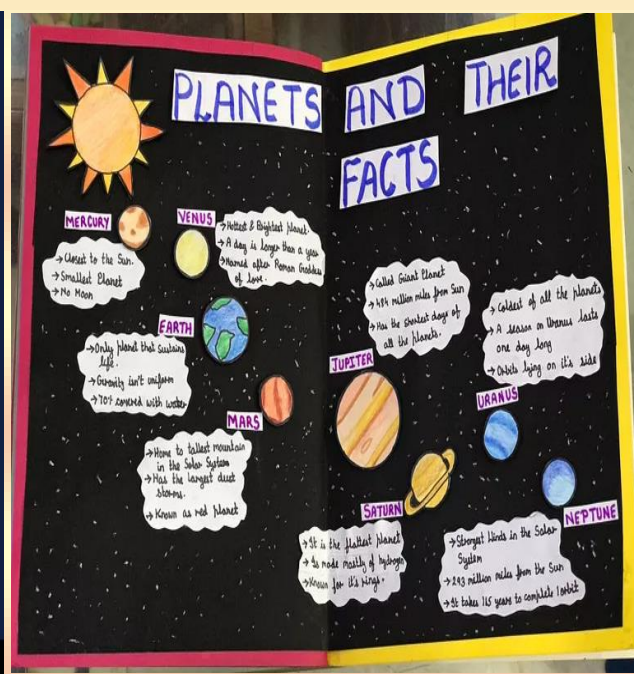 PLANETS AND THEIR
FACTS
MERCURY
→ Closest to the Sun.
→ Smallest Planet
→ No Moon
VENUS
→ Hottest & Brightest planet.
→ A day is longer than a year
→ Named after Roman Goddess
of love.
EARTH
→ Only planet that sustains
life.
→ Gravity isn't uniform
→ 70% covered with water
MARS
→ Home to tallest mountain
in the Solar System
→ Has the largest dust
storms.
→ Known as red planet
→ Called Giant Planet
→ 484 million miles from Sun
→ Has the shortest days of
all the planets.
JUPITER
→ Coldest of all the planets
→ A season on Uranus lasts
one day long
→ Orbits lying on it's side
URANUS
SATURN
→ It is the flattest planet
→ Is made mostly of hydrogen
→ Known for it's rings.
NEPTUNE
→ Strongest Winds in the Solar
System
→ 293 million miles from the Sun
→ It takes 165 years to complete 1 orbit